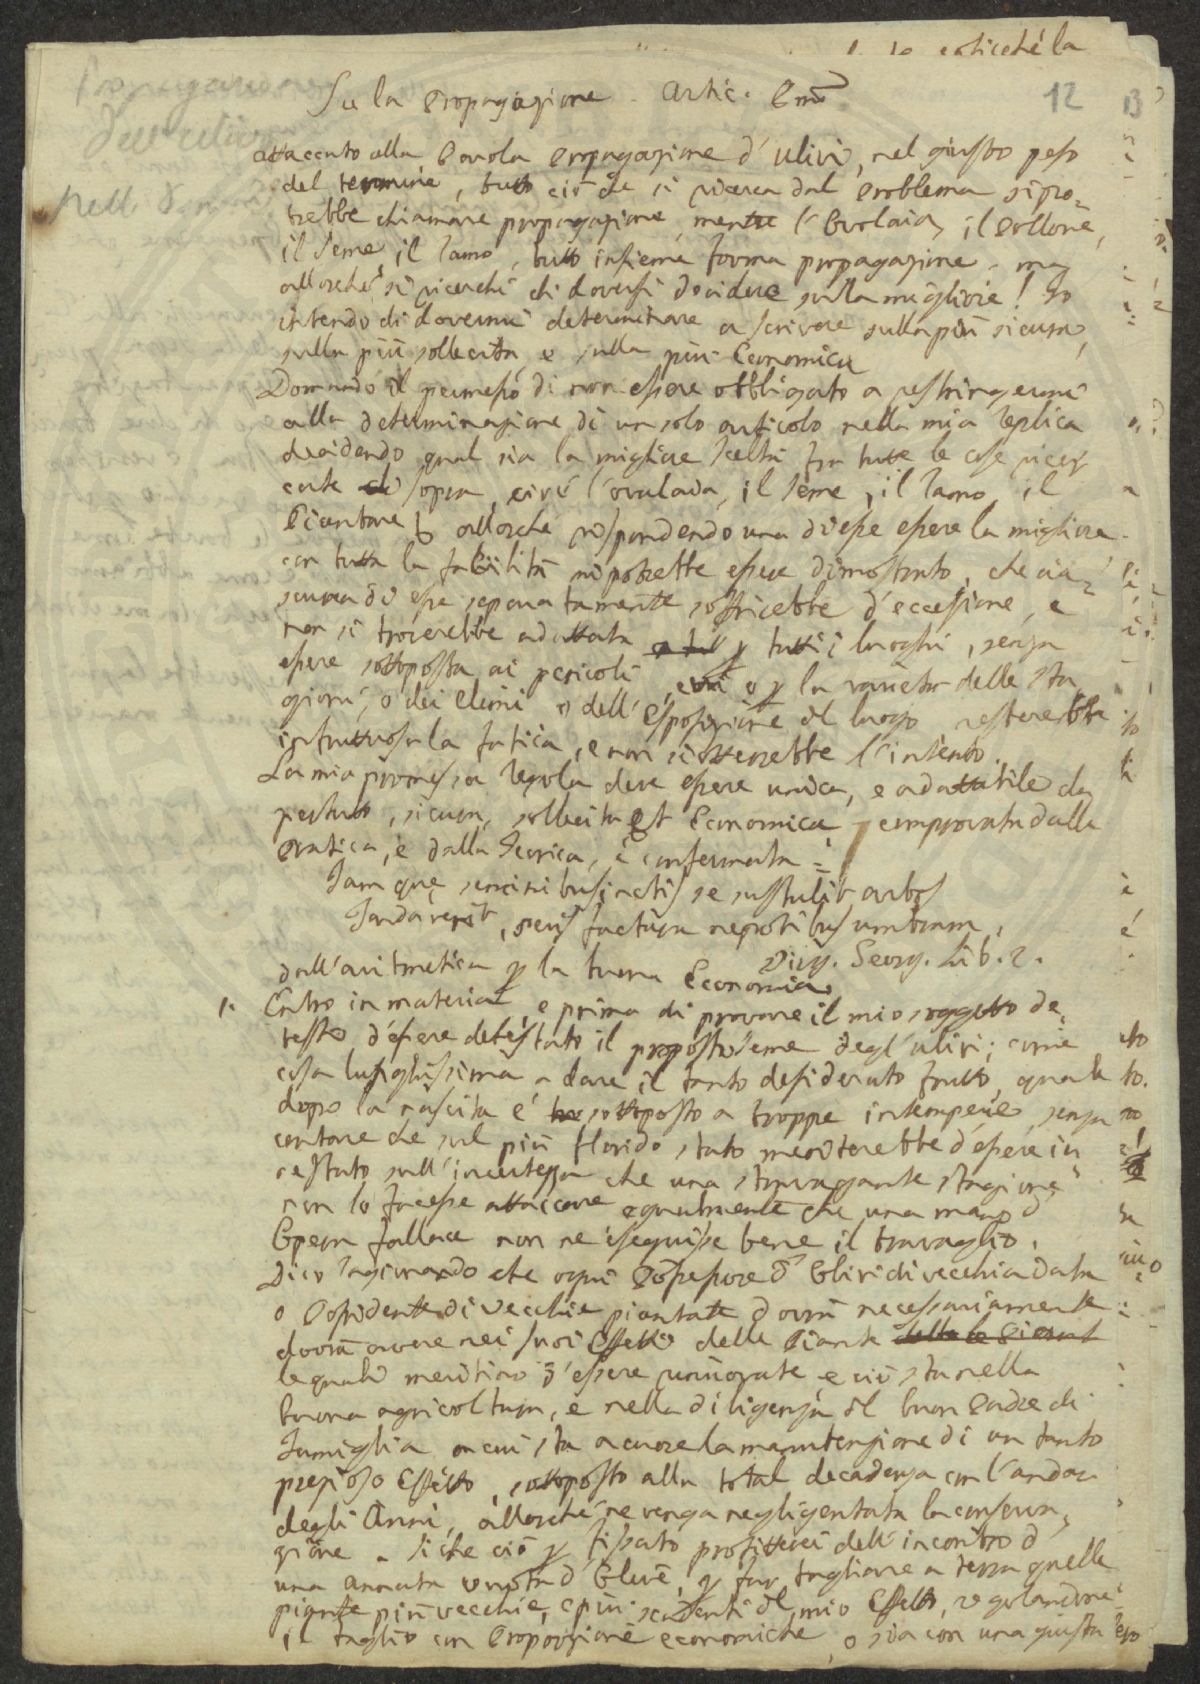 Su la Propagazione. Artic. Pmo
12
13
attaccato alla Parola Propagazione d'ulivi, nel giusto peso
del termine, tutto ciò che si ricerca dal Problema si po=
trebbe chiamare propagazione, mentre l'Ovolaia, il Pollone,
il seme, il Ramo, tutto insieme forma propagazione, ma
allorché si ricerchi di doversi decidere sulla migliore! Io
intendo di dovermi determinare a scrivere sulla più sicura,
sulla più sollecita, e sulla più Economica
Domando il permesso di non essere obbligato a restringermi
alla determinazione di un solo articolo nella mia Replica
decidendo qual sia la migliore scelta fra tutte le cose ricer
cate di sopra, cioè l'ovolaia, il seme, il Ramo, il
Piantare allorché rispondendo una di esse essere la migliore
con tutta la facilità mi potrebbe essere dimostrato, che cia=
scuna di esse separatamente soffrirebbe d'eccessione, e
non si troverebbe adattata p tutti i luoghi, senza
essere sottoposta ai pericoli, o p la varietà delle sta
gioni, o dei Climi o dell'Esposizione del luogo resterebbe
infruttuosa la fatica, e non si otterrebbe l'intento.
La mia promessa Regola deve essere unica, e adattabile da
pertutto, sicura, sollecita et Economica, comprovata dalla
Pratica, e dalla Teorica, e confermata =
Jam quae seminibus jactis se sustulit arbos
Tarda venit, seris factura nepotibus umbram,
Virg. Georg. Lib. 2.
dall'aritmetica p la buona Economia
1. Entro in materia, e prima di provare il mio soggetto de=
testo d'essere detestato il proposto seme degl'ulivi; come
cosa lunghissima a dare il tanto desiderato frutto, quale
dopo la nascita è sottoposto a troppe intemperie, senza
contare che sul più florido stato meriterebbe d'essere in
nestato sull'incertezza che una stravagante stagione
non lo facesse attaccare egualmente che una mano d
Opera fallace non ne eseguisse bene il travaglio.
Dico ragionando che ogni Possessore d' Ulivi di vecchia data
o Possidente di vecchie piantate dovrà necessariamente
dovrà avere nei suoi Effetti delle Piante
le quali meritino d'essere rinnovate e ciò sta nella
buona agricoltura, e nella diligenza del buon Padre di
Famiglia a cui sta a cuore la manutenzione di un tanto
prezioso Effetto, sottoposto alla total decadenza con l'andar
degli Anni, allorché ne venga negligentata la conserva=
zione. Siche ciò p fissato profitterei dell'incontro d
una annata vuota d' Ulive, p far tagliare a terra quelle
piante più vecchie, e più scadenti del mio Effetto, regolandone
il taglio con Proporzione economiche, o sia con una giusta